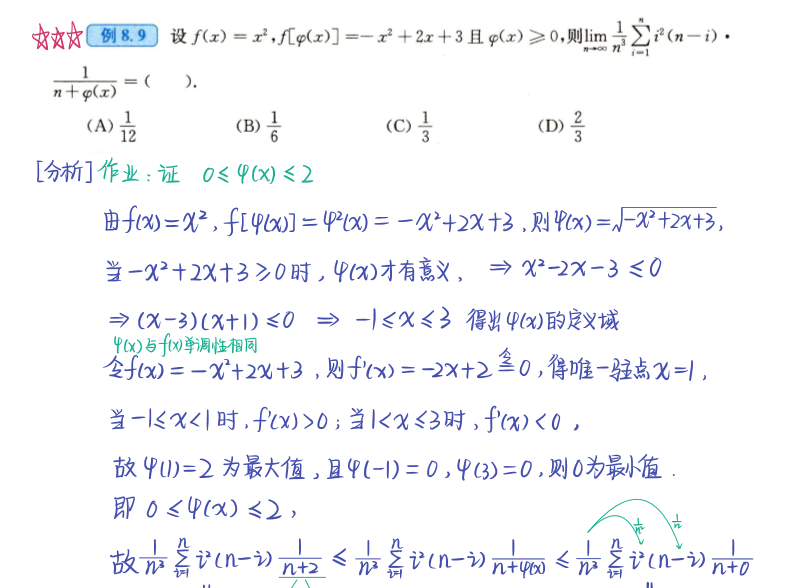 ☆☆☆ 例8.9 设 f(x) = x², f[φ(x)] = -x² + 2x + 3 且 φ(x) ≥ 0, 则 lim_{n→∞} 1/n³ ∑_{i=1}^{n} i²(n-i)·
1/(n+φ(x)) = ( ).
(A) 1/12 (B) 1/6 (C) 1/3 (D) 2/3
[分析] 作业: 证 0 ≤ φ(x) ≤ 2
由 f(x) = x², f[φ(x)] = φ²(x) = -x²+2x+3, 则 φ(x) = √(-x²+2x+3),
当 -x²+2x+3 ≥ 0 时, φ(x) 才有意义, ⇒ x²-2x-3 ≤ 0
⇒ (x-3)(x+1) ≤ 0 ⇒ -1 ≤ x ≤ 3 得出 φ(x) 的定义域
φ(x)与f(x)单调性相同
令 f(x) = -x²+2x+3, 则 f'(x) = -2x+2 令= 0, 得唯一驻点 x=1,
当 -1 ≤ x < 1 时, f'(x) > 0; 当 1 < x ≤ 3 时, f'(x) < 0,
故 φ(1) = 2 为最大值, 且 φ(-1) = 0, φ(3) = 0, 则 0 为最小值.
即 0 ≤ φ(x) ≤ 2,
1/n 1/n
故 1/n³ ∑_{i=1}^{n} i²(n-i) 1/(n+2) ≤ 1/n³ ∑_{i=1}^{n} i²(n-i) 1/(n+φ(x)) ≤ 1/n³ ∑_{i=1}^{n} i²(n-i) 1/(n+0)